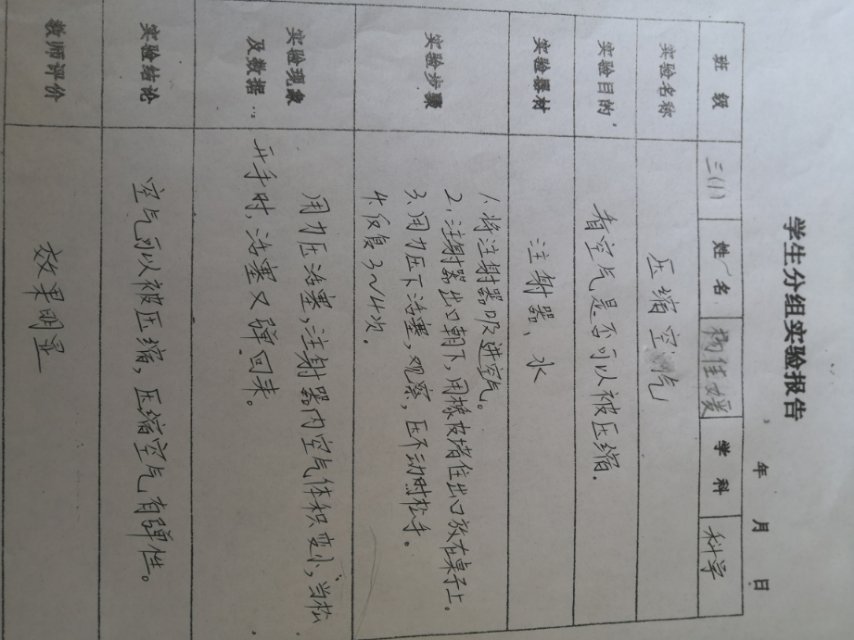 学生分组实验报告
年 月 日
班级 三(1) 姓名 杨佳媛 学科 科学
实验名称 压缩空气
实验目的 看空气是否可以被压缩.
实验器材 注射器、水
实验步骤
1.将注射器吸进空气。
2.注射器出口朝下,用橡皮堵住出口放在桌子上.
3.用力压下活塞,观察,压不动时松手。
4.反复3~4次.
实验现象
及数据
用力压活塞,注射器内空气体积变小,当松
开手时,活塞又弹回来。
实验结论 空气可以被压缩,压缩空气有弹性。
教师评价 效果明显